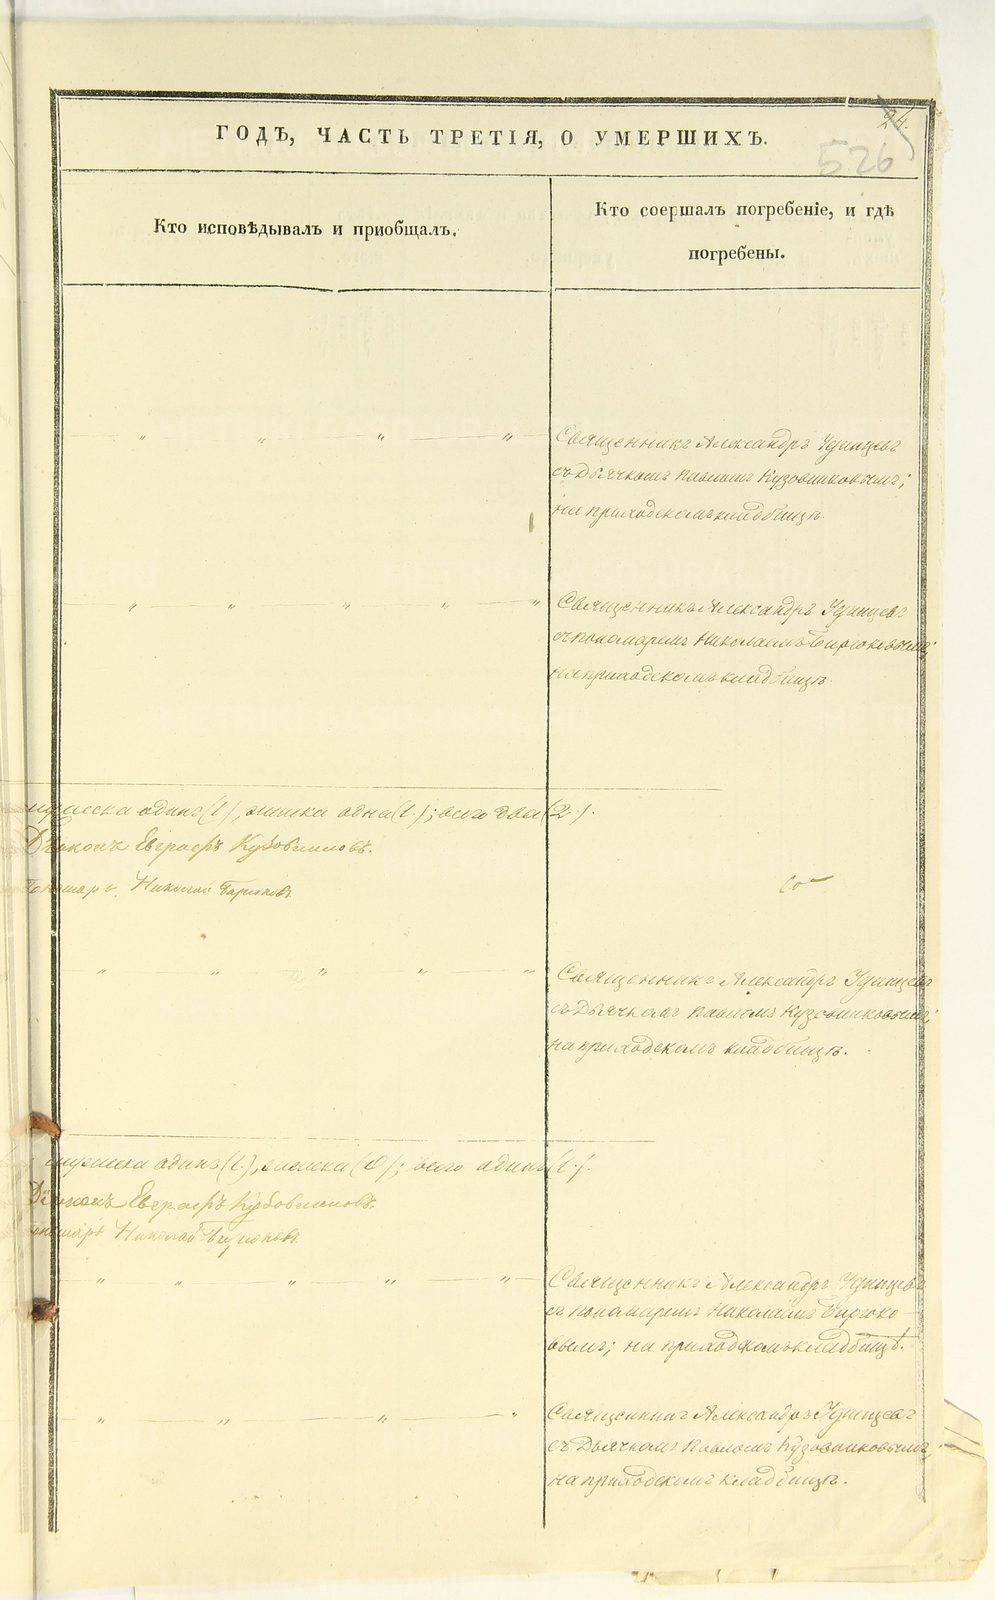 24.
526
ГОДѢ, ЧАСТЬ ТРЕТІЯ, О УМЕРШИХЪ.
Кто исповѣдывалъ и приобщалъ.
Кто соершалъ погребеніе, и гдѣ
погребены.
" " " "
Священникъ Александръ Удинцевъ
съ Дьячкомъ Павломъ Кузовниковымъ;
на приходскомъ кладбищѣ.
" " " " "
Священникъ Александръ Удинцевъ
съ пономаремъ Николаемъ Бирюковымъ;
на приходскомъ кладбищѣ.
мужеска одинъ (1), женска одна (1.); всего два (2.).
Діаконъ Евграфъ
Пономарь Николай Бирюковъ.
" " " " "
Священникъ Александръ Удинцевъ
съ Дьячкомъ Павломъ Кузовниковымъ;
на приходскомъ кладбищѣ.
мужеска одинъ (1.), женска (0); всего одинъ (1.).
Діаконъ Евграфъ
Пономарь Николай Бирюковъ.
" " " " "
Священникъ Александръ Удинцевъ
съ пономаремъ Николаемъ Бирюко
вымъ; на приходскомъ кладбищѣ.
" " " "
Священникъ Александръ Удинцевъ
съ Дьячкомъ Павломъ Кузовниковымъ;
на приходскомъ кладбищѣ.
METRIKI.GASO-URAL.RU